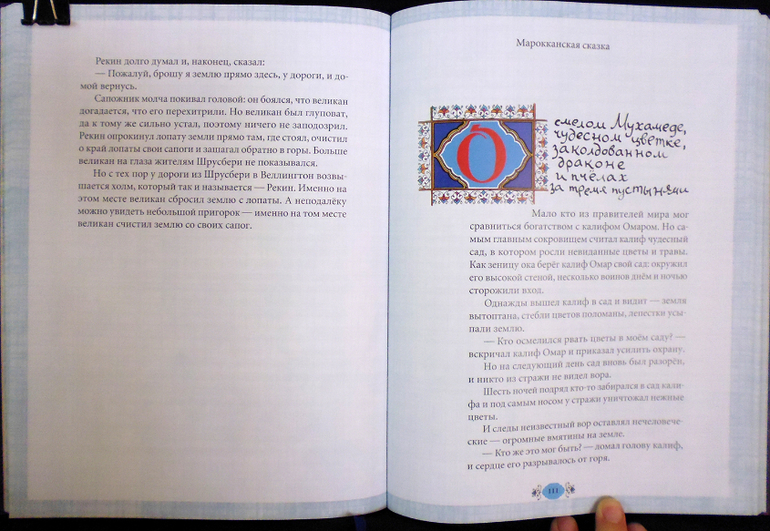 Рекин долго думал и, наконец, сказал:
— Пожалуй, брошу я землю прямо здесь, у дороги, и до-
мой вернусь.
Сапожник молча покивал головой: он боялся, что великан
догадается, что его перехитрили. Но великан был глуповат,
да к тому же сильно устал, поэтому ничего не заподозрил.
Рекин опрокинул лопату земли прямо там, где стоял, очистил
о край лопаты свои сапоги и зашагал обратно в горы. Больше
великан на глаза жителям Шрусбери не показывался.
Но с тех пор у дороги из Шрусбери в Веллингтон возвы-
шается холм, который так и называется — Рекин. Именно на
этом месте великан сбросил землю с лопаты. А неподалёку
можно увидеть небольшой пригорок — именно на том месте
великан счистил землю со своих сапог.
Марокканская сказка
О
смелом Мухамеде,
чудесном цветке,
заколдованном
драконе
и пчёлах
за тремя пустынями
Мало кто из правителей мира мог
сравниться богатством с калифом Омаром. Но са-
мым главным сокровищем считал калиф чудесный
сад, в котором росли невиданные цветы и травы.
Как зеницу ока берёг калиф Омар свой сад: окружил
его высокой стеной, несколько воинов днём и ночью
сторожили вход.
Однажды вышел калиф в сад и видит — земля
вытоптана, стебли цветов поломаны, лепестки усы-
пали землю.
— Кто осмелился рвать цветы в моём саду? —
вскричал калиф Омар и приказал усилить охрану.
Но на следующий день сад вновь был разорён,
и никто из стражи не видел вора.
Шесть ночей подряд кто-то забирался в сад кали-
фа и под самым носом у стражи уничтожал нежные
цветы.
И следы неизвестный вор оставлял нечеловече-
ские — огромные вмятины на земле.
— Кто же это мог быть? — ломал голову калиф,
и сердце его разрывалось от горя.
111